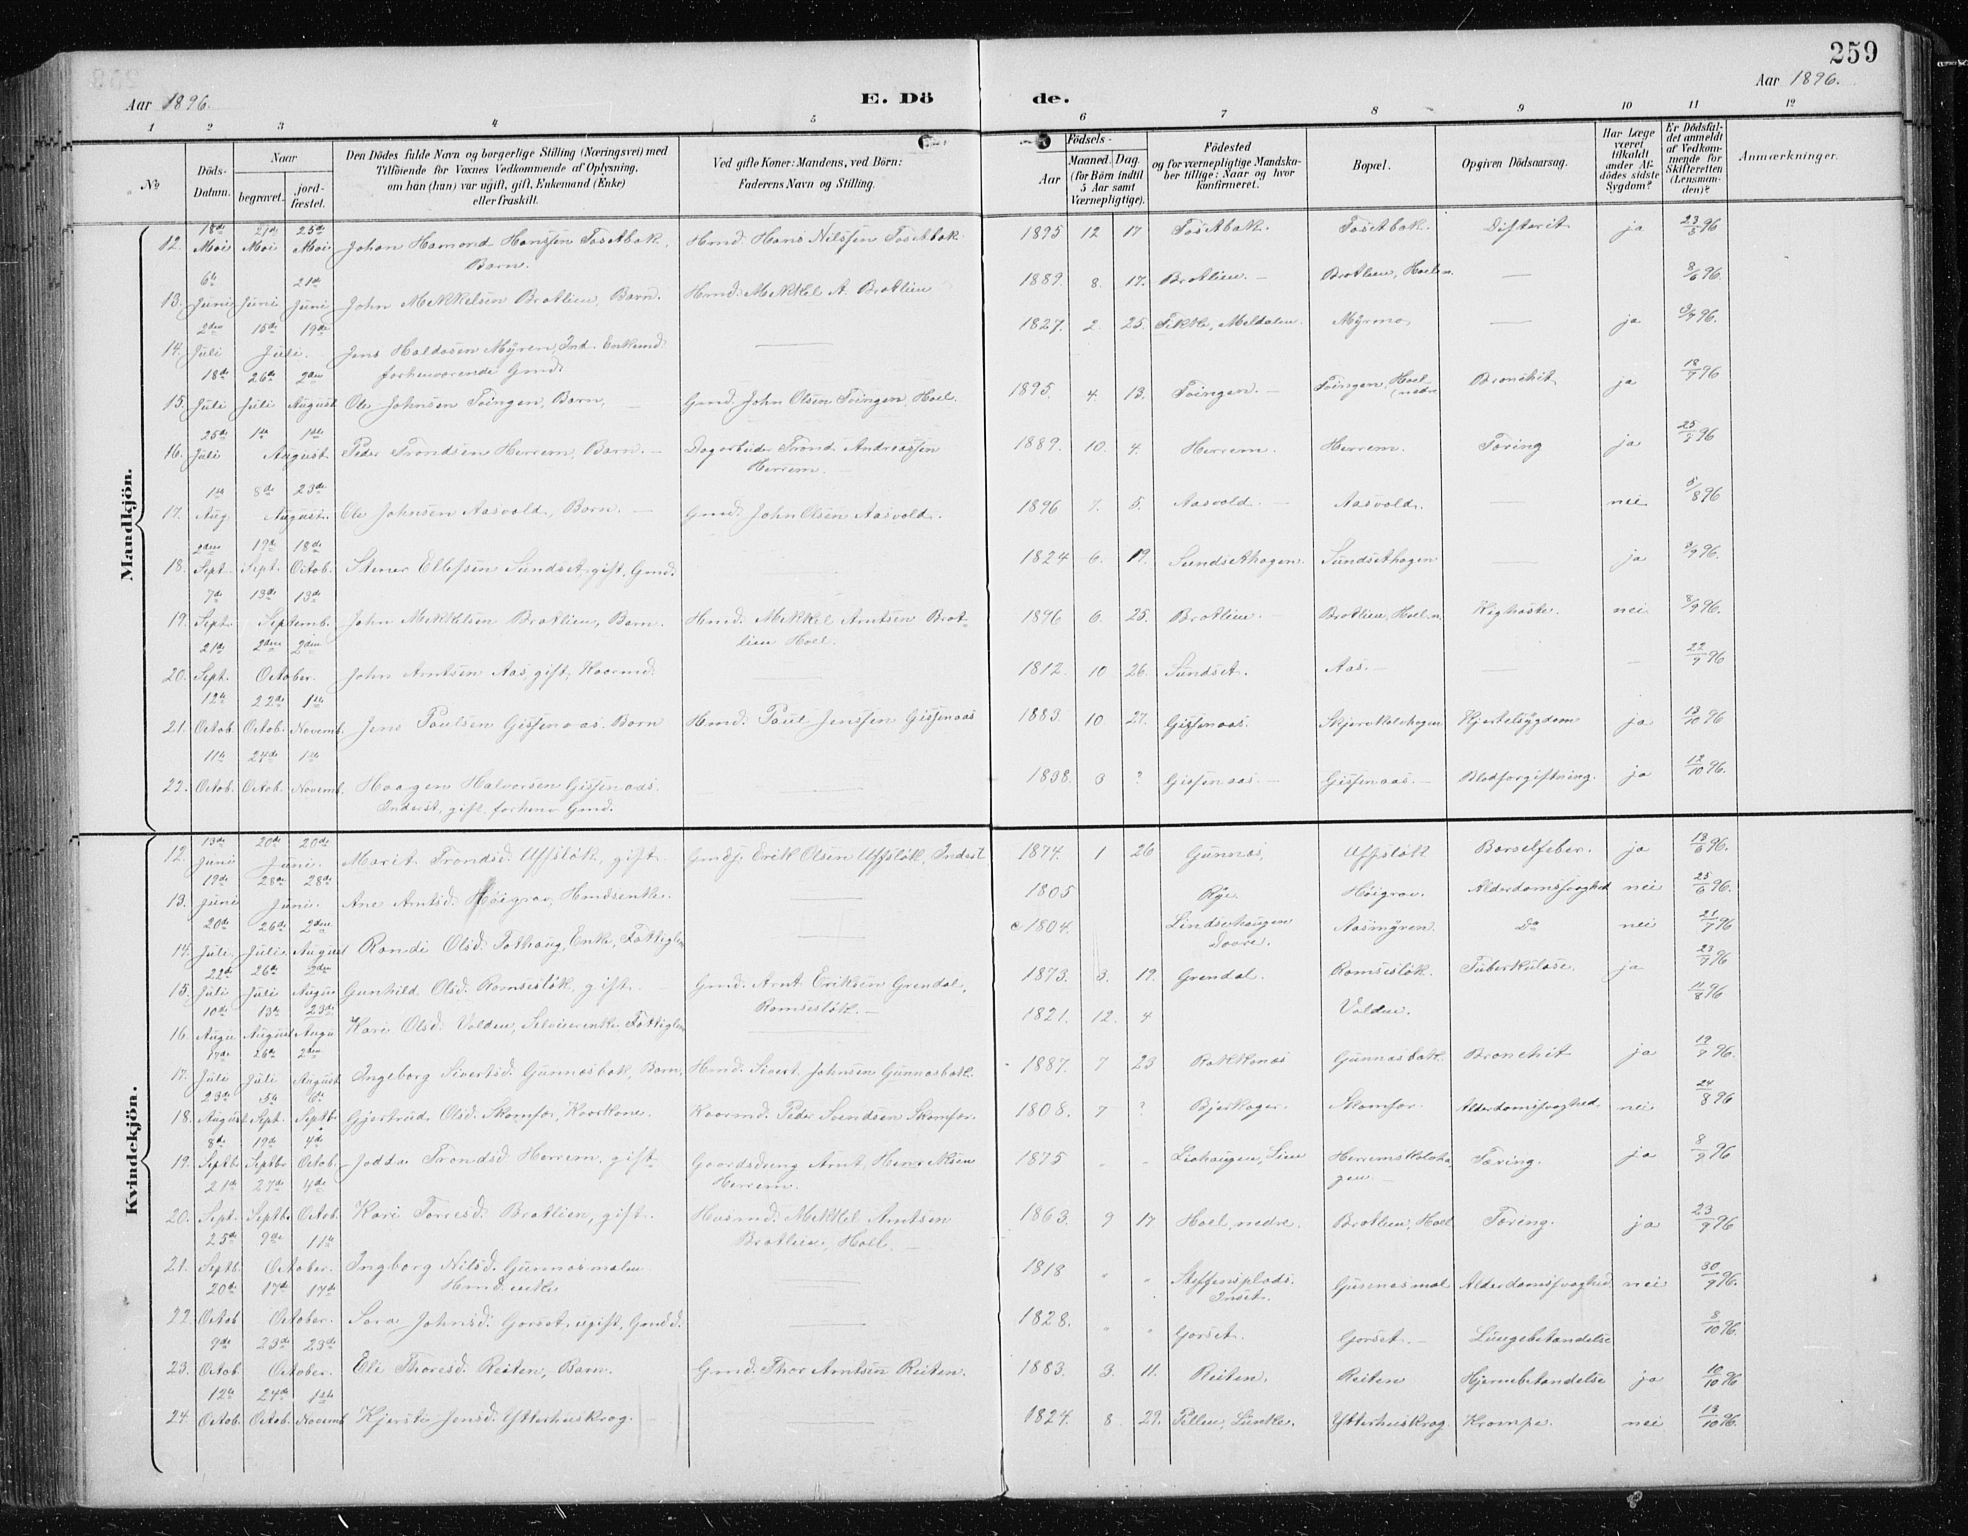 259
Aar 1896. E. Dö de. Aar 1896.
1 2 3 4 5 6 7 8 9 10 11 12
No
Döds-Datum.
Naar
begravet.
jord-fæstet.
Den Dödes fulde Navn og borgerlige Stilling (Næringsvei) med
Tilföiende for Voxnes Vedkommende af Oplysning,
om han (hun) var ugift, gift, Enkemand (Enke)
eller fraskilt.
Ved gifte Koner: Mandens, ved Börn:
Faderens Navn og Stilling.
Födsels-
Aar
Maaned. Dag.
(for Börn indtil
5 Aar samt
Værnepligtige).
Födested
og for værnepligtige Mandska-
ber tillige: Naar og hvor
konfirmeret.
Bopæl.
Opgiven Dödsaarsag.
Har Læge
været
tilkaldt
under Af-
dödes sidste
Sygdom?
Er Dödsfal-
det anmeldt
af Vedkom-
mende for
Skifteretten
(Lensman-
den)?
Anmærkninger.
Mandkjön.
12. 18de Mai 21de Mai 25de Mai Johan Hansen Tosetbak, Barn. Hmd. Hans Nilssen Tosetbak 1895 12 17 Tosetbak. Tosetbak. Difterit ja 23/5 96
13. 6te Juni Juni 21de Juni John Mekkelsen Brotlien, Barn. Hmd. Mekkel A. Brotlien 1889. 8. 17. Brotlien. — Brotlien, Hoel n. — 8/6 96.
14. 2den Juli 15de 19de Juli. Jens Haldosen Myren, Ind. Enkemd. forhenværende Gmd. — 1827. 2. 25. Meldalen. Myrmo — ja 96.
15. 18de Juli 26de Juli 2den August Ole Johnsen Toingen, Barn, — Gmd. John Olsen Toingen, Hoel. 1895. 4. 13. Toingen. — Toingen, Hoel nedre Bronchit ja 18/7 96
16. 25de Juli 1ste 1ste August Peder Trondsen Herrem, Barn. — Dagarbeider Trond Andreassen Herrem. — 1889. 10. 4. Herrem. Herrem. Tæring ja 25/7 96
17. 1ste Aug. 8de 23de August. Ole Johnsen Aasvold, Barn. — Gmd. John Olsen Aasvold. 1896 7. 5. Aasvold. — Aasvold. — nei 5/8 96
18. 2den Sept. 19de Sept. 18de Octob. Stener Ellefsen Sundset, gift, Gmd. — 1824 6. 19. Sundsethagen. Sundsethagen — ja 3/9 96.
19. 7de Sept. 13de 13de Septemb. John Mekkelsen Brotlien, Barn. Hmd. Mekkel Arntsen Brotlien Hoel. 1896 6. 25. Brotlien. — Brotlien, Hoel n. Kighoste. nei 8/9 96.
20. 21de Sept. 2den 2den October. John Arntsen Aas, gift, Kaarmd. — 1812. 10 26. Sundset. Aas. — — — 22/9 96
21. 12te Octob. 22de Octob. 1ste Novemb. Jens Paulsen Gissenaas. Barn Hmd. Paul Jenssen Gissenaas 1883. 10 27. Gissenaas. Skjerskolehagen Kjertelsygdom ja 13/10 96
22. 11te Octob. 24de Octob. 1ste Novemb. Haagen Halvorsen Gissenaas. Inderst, gift, forhenv. Gmd. — 1838. 3 ? Gissenaas. — Gissenaas. — Blodforgiftning. ja 12/10 96.
Kvindekjön.
12. 13de Juni 20de 20de Juni. Marit Trondsd. Uffslök, gift Gmds. Erik Olsen Uffslök, Indset 1874. 1 26 Gunnas, Uffslök Barselfeber. ja 13/6 96.
13. 19de Juni 28de 28de Juni. Ane Arntsd. Höigrav, Hmdsenke. — 1805 Rye. Höigrav. Alderdomssvaghed nei 25/6 96.
14. 20de Juli 26de Juli 2den August Randi Olsd. Tolhaug, Enke, Fattiglem — c 1804. Lindsethaugen Aasmyren. Do nei 21/7 96
15. 22de Juli 26de Juli 2den August Gunhild Olsd. Romseslök, gift. — Gmd. Arnt Eriksen Grendal, Romseslök. — 1873. 3. 19. Grendal. Romseslök. Tuberkulose. ja 23/7 96
16. 10de Augu 13de August 23de Augu Kari Olsd. Volden, Selveierenke. Fattiglem — 1821. 12. 4 Volden. 11/8 96
17. 17de Juli 26de Juli 2den August Ingeborg Sivertsd. Gunnasbak, Barn, Hmd. Sivert Johnsen Gunnasbak. 1887. 7 23 Rokkones Gunnasbak. Bronchit ja 19/7 96.
18. 23de August 5te Sept. 6te Septbr Gjertrud Olsd. Skomfar, Kaarkone. Kaarmd. Peder Svendsen Skomfar. 1808. 7 ? Bjerkager. Skomfar. Alderdomssvaghed. nei 24/8 96
19. 8de Septbr. 19de Septbr 4de Octob. Trondsd. Herrem. gift Gaardsdreng Arnt Henriksen Herrem. 1875 " " Liahaugen, Herremskolehagen — Tæring. ja 8/9 96
20. 21de Sept. 27de Septbr. 4de Octob. Kari Torresd. Brotlien, gift. Husmd. Mekkel Arntsen Brotlien, Hoel. — 1863. 9 17 Hoel, nedre. Brotlien, Hoel Tæring. ja 23/9 96
21. 25de Septb. 9de 11te October. Ingborg Nilsd. Gunnasmalen Hmd. enke — 1818 " " Steffensplads. Inset. Gunnasmal Alderdomssvaghed nei 30/9 96.
22. 20de Octob 17de 17de October. Johnsd. Gorset, ugift, Gmdd. — 1828. " " Gorset. Gorset. — Lungebetændelse 8/10 96.
23. 9de Octob. 23de 23de October. Eli Thoresd. Reiten, Barn. Gmd. Thor Arntsen Reiten. 1883. 3. 11. Reiten. Reiten Hjernebetændelse ja 10/10 96
24. 12te Octob. 24de Octob. 1ste Novemb Kjersti Jensd. Ytterhuskrog. — 1824. 8. 29. Ytterhuskrog Krampe. nei 13/10 96.